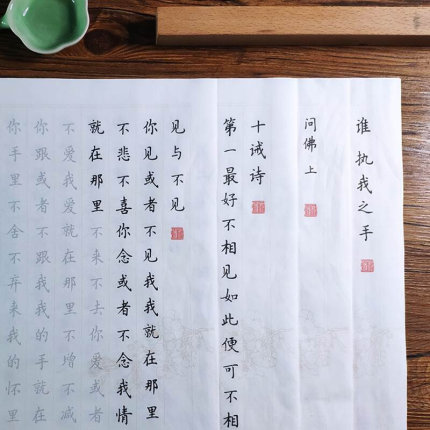 谁执我之手
问佛 上
十诫诗
第一最好不相见如此便可不相
见与不见
你见或者不见我我就在那里
不悲不喜你念或者不念我情
就在那里不来不去你爱或者
不爱我爱就在那里不增不减
你跟或者不跟我我的手就在
你手里不舍不弃来我的怀里